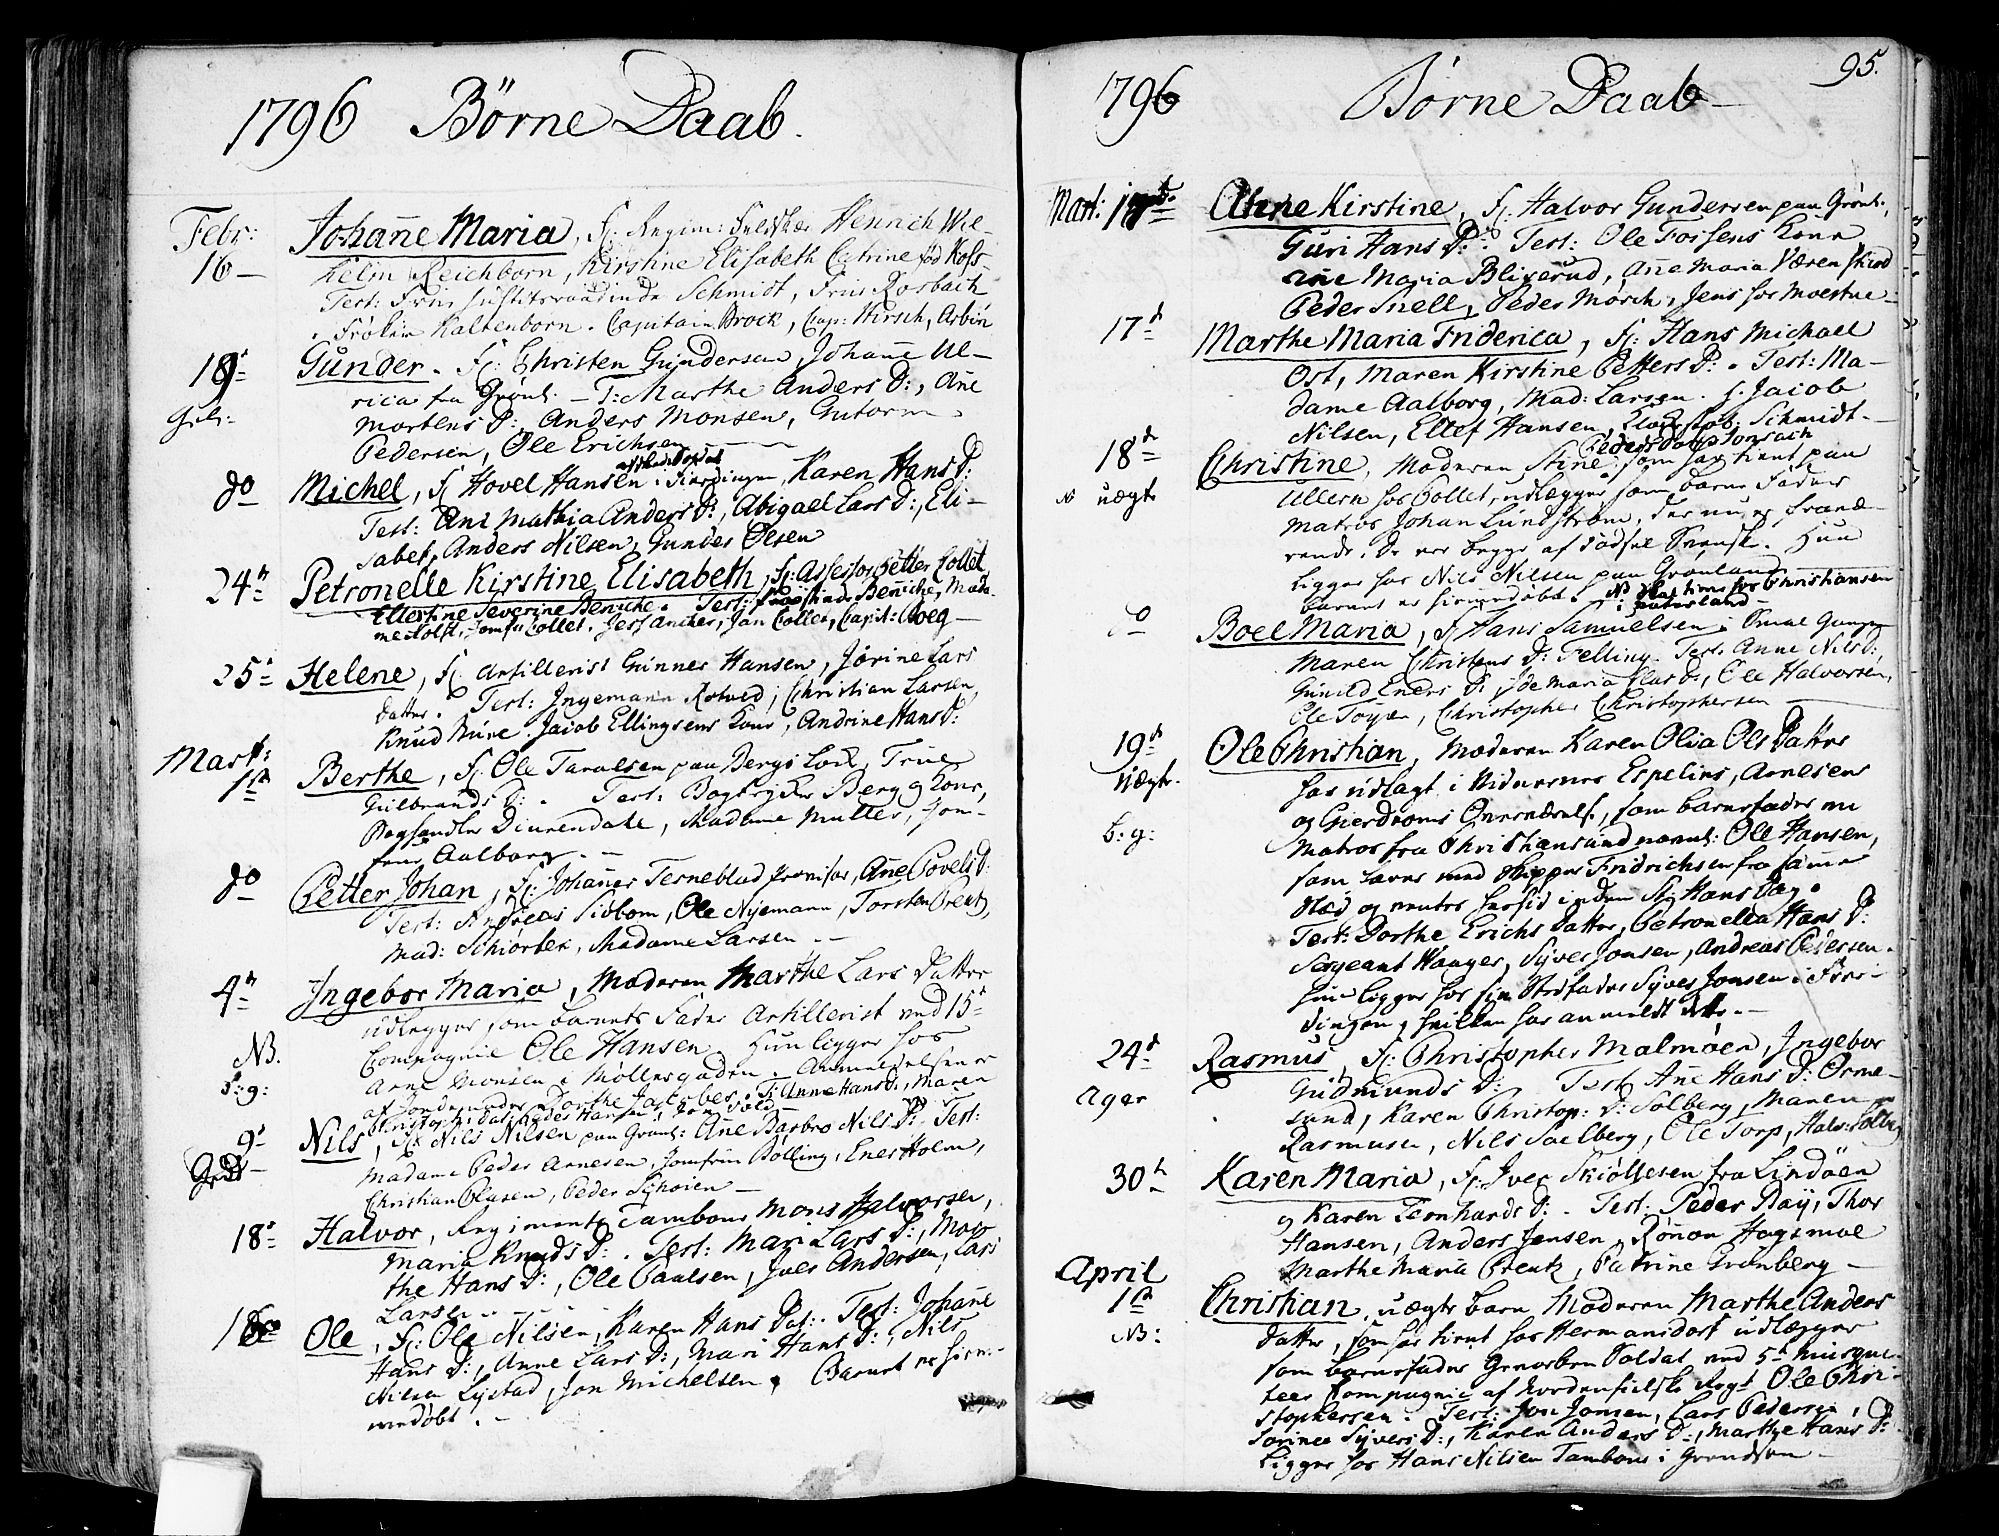 1796 Börne Daab.
Febr: 16 Johañe Maria, F: Regim: Feldskiær Henrich Wil-
helm Reichborn, Kirstine Elisabeth Catrine fød Koss
Test: Frue Justitsraadinde Schmidt, Frue Rosbach
Frøken Kaltenborn. Capitain Brock, Cap: Hirsch, Asbiör
19 Gunder. F: Christen Gundersen, Johañe Ul-
rica fra Grønl. T: Marthe Anders D:, Ane
Mortens D:, Anders Monsen, Gutorm
Pedersen, Ole Erichsen
do Michel, F: Hovel Hansen Karen Hans D:
Test: Ane Mathia Anders D:, Abigael Lars D:, Eli-
sabet, Anders Nilsen, Gunder Olsen
24 Petronelle Kirstine Elisabeth, F: Assessor Petter Collet
Ellertine Severine Beniche. Test: Beniche, Mada-
me Jomfru Collet. Jess Ancher, Jan Collet, Capit:
25 Helene, F: Artillerist Gunner Hansen, Jorine Lars
Datter. Test: Ingemann Rotved, Christian Larsen,
Knud Jacob Ellingsens Kone, Andrine Hans D:
Mart: 1 Berthe, F: Ole Taralsen paa Bergs Løk, True
Gulbrands D: Test: Bogtrykker Berg og Kone,
Boghandler Diurendahl, Madame Muller, Jom-
frue Aalborg.
do Petter Johan, F: Johañes Terneblad Provisor, Añe Povels D:
Test: Andreas Siobom, Ole Nyemann, Torsten Preutz,
Mad: Schiørbek, Madame Larsen.
4 Ingebor Maria, Moderen Marthe Lars Datter
NB. udlegger som barnets Fader Artillerist ved 15
Compagnie Ole Hansen. Hun ligger hos
Arne Monsen i Møllergaden. Anmeldelsen er
b: g: af Jordemoder Dorthe T: Anne Hans D:, Maren
Christophersdatter, Peder Hansen, Jon
9 Nils, F: Nils Nilsen paa Grønl: Añe Barbro Nils D: Test:
Madame Peder Arnesen, Jomfrue Bolling, Ener Holm,
Christian Clausen, Peder
18 Halvor, Regiments Tambour Mons Halvorsen,
Maria Knuds D:. Test: Mari Lars D:, Mar-
the Hans D:, Ole Paulsen, Iver Andersen, Lars
Larsen
18 Ole, F: Ole Nilsen, Karen Hans Dat:. Test: Johañe
Hans D:, Anne Lars D:, Mari Hans D:, Nils
Nilsen Lystad, Jon Michelsen. Barnet er hiem-
medøbt.
1796 Börne Daab 95.
Mart: Anne Kirstine, F: Halvor Gundersen paa Grønl.,
Guri Hans D:. Test: Ole Fossens Kone
Ane Maria Blixerud, Añe Maria Væren
Peder Snell, Peder Mörch, Jens hos Moestue
17 Marthe Maria Friderica, F: Hans Michael
Ost, Maren Kirstine Petters D:. Test: Ma-
dame Aalborg, Mad: Larsen. H. Jacob
Nilsen, Ellef Hansen, Schmidt.
18 Christine, Moderen Stine Pedersdatter som har tient paa
N uægte Ullern hos Collet, udlegger som barne Fader
Matros Johan Lundstrøm, der nu er
De ere begge af fødsel Svensk. Hun
ligger hos Nils Nilsen paa Grønland
barnet er hiemedøbt. NB Christiansen
i Waterland
do Boel Maria, F: Hans Samuelsen i
Maren Christens D: Felling. Test: Anne Nils D:,
Gunild Eners D: Ide Maria D:, Ole Halvorsen,
Ole Toyen, Christopher Christophersen
19 Ole Christian, Moderen Karen Olia Ols Datter
Uægte. har udlagt i Vidnernes Espelins, Arnesens
og Gierdrums Overværelse, som barnefader en
b: g: Matros fra Christiansund navnl: Ole Hansen,
som farer med Skipper Fridrichsen fra samme
Stæd og ventes herhid inden St: Hans Dag.
Test: Dorthe Erichs Datter, Petronella Hans D:
Sergeant Hauger, Syver Jonsen, Andreas Pedersen.
hun ligger hos sin Stedfader Syver Jonsen i Fier-
dingen, hvilken har anmeldt dette.
24 Rasmus, F: Christopher Malmøen, Ingebor
Ager Gudmunds D: Test: Añe Hans D: Orme-
sund, Karen Christop: D: Solberg, Maren
Rasmusen, Nils Saelberg, Ole Torp, Halv: Solbr
30 Karen Maria, F: Iver Skiöllesen fra Lindöen
og Karen Bernhards D:. Test: Peder Bay, Thor
Hansen, Anders Jensen, Rönou Hagsmoe
Marthe Maria Preutz, Patrine Gronberg
April
1 Christian, uægte barn, Moderen Marthe Anders
NB: Datter, som har tient hos Hermansdorf udlægger
som barnefader Geworben Soldat ved 5 Musque-
teer Compagnie af Nordenfielske Regt Ole Chri-
stophersen. Test: Jon Jonsen, Lars Pedersen,
Sorinee Syvers D:, Karen Anders D:, Marthe Hans D:
Ligger hos Hans Nilsen Tambour i Grændsen